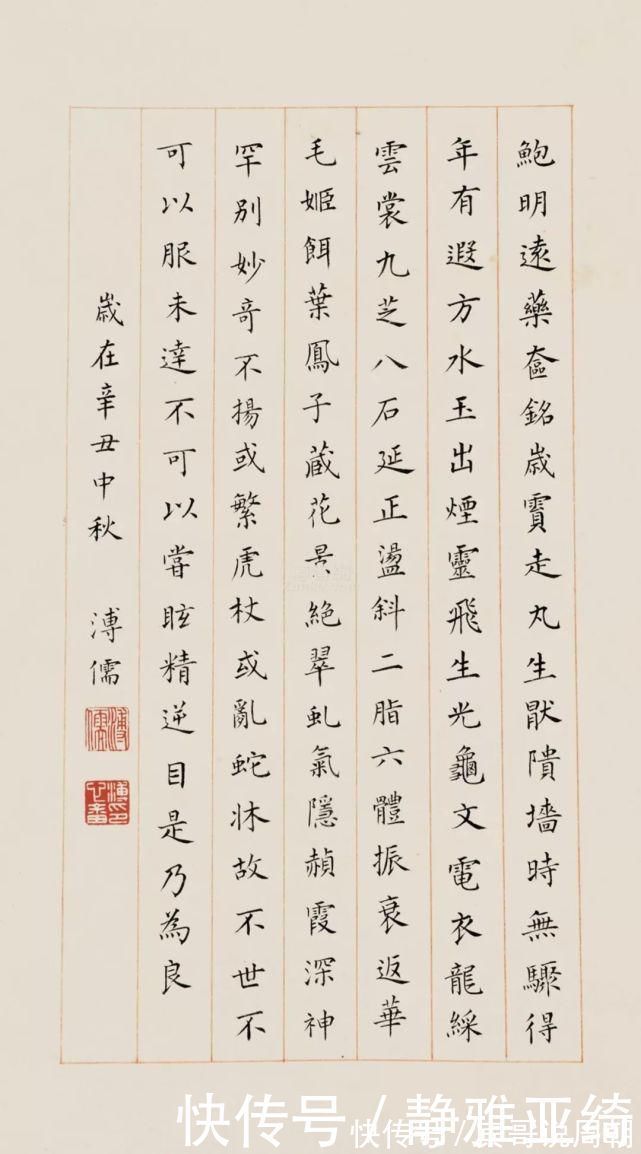 鮑明遠藥奩銘歲賓走丸生猒隤墻時無驟得
年有遐方水玉出煙靈飛生光龜文電衣龍綵
雲裳九芝八石延正盪斜二脂六體振衰返華
毛姬餌葉鳳子藏花景絕翠虬氣隱赬霞深神
罕別妙奇不揚或繁虎杖或亂蛇牀故不世不
可以服未達不可以嘗眩精逆目是乃為良
歲在辛丑中秋 溥儒
快传号/静雅亚绮